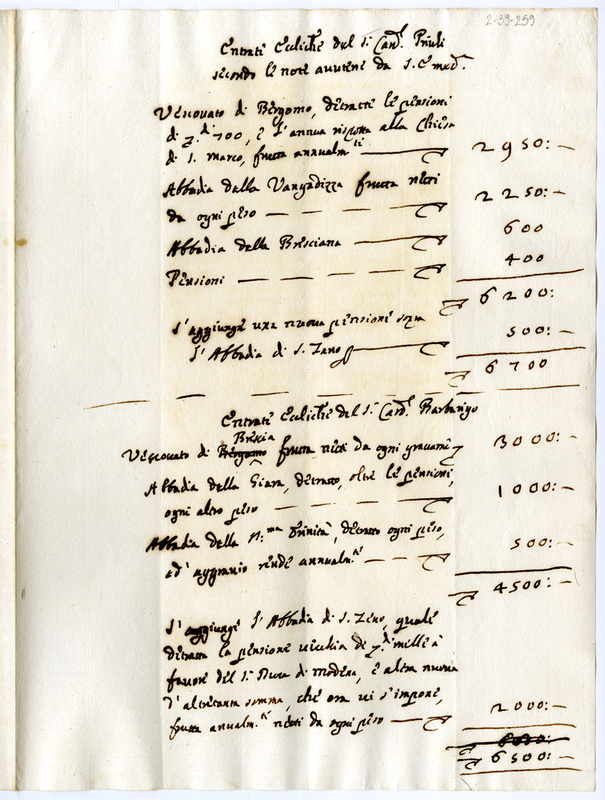 2-39-259
Entrate Eccl.che del S.r Card.l Priuli
secondo le note avutene da S. E. med.a
Vescovato di Bergomo, detratte le pensioni
di z. di 700, e l'annua risposta alla Chiesa
di S. Marco, frutta annualm.te — 2950:—
Abbadia della Vangadizza frutta netti
da ogni peso — 2250:—
Abbadia della Bresciana — 600
Pensioni — 400
6200:
S'aggiunge una nuova pensione sopra
l'Abbadia di S. Zeno — 500:
6700
Entrate Eccl.che del S.r Card.l Barbarigo
Brescia
Vescovato di Bergomo frutta netti da ogni gravame 3000:—
Abbadia della Giara, detratto, oltre le pensioni,
ogni altro peso — 1000:—
Abbadia della SS.ma Trinità, detratto ogni peso,
ed aggravio rende annualm.te — 500:—
4500:—
S'aggiunge l'Abbadia di S. Zeno, quale
detratta la pensione vecchia de z.di mille à
favore del S.r Duca di Modena, e altra nuova
d'altretanta somma, che ora vi s'impone,
frutta annualm.te netti da ogni peso — 2000:—
6500:—